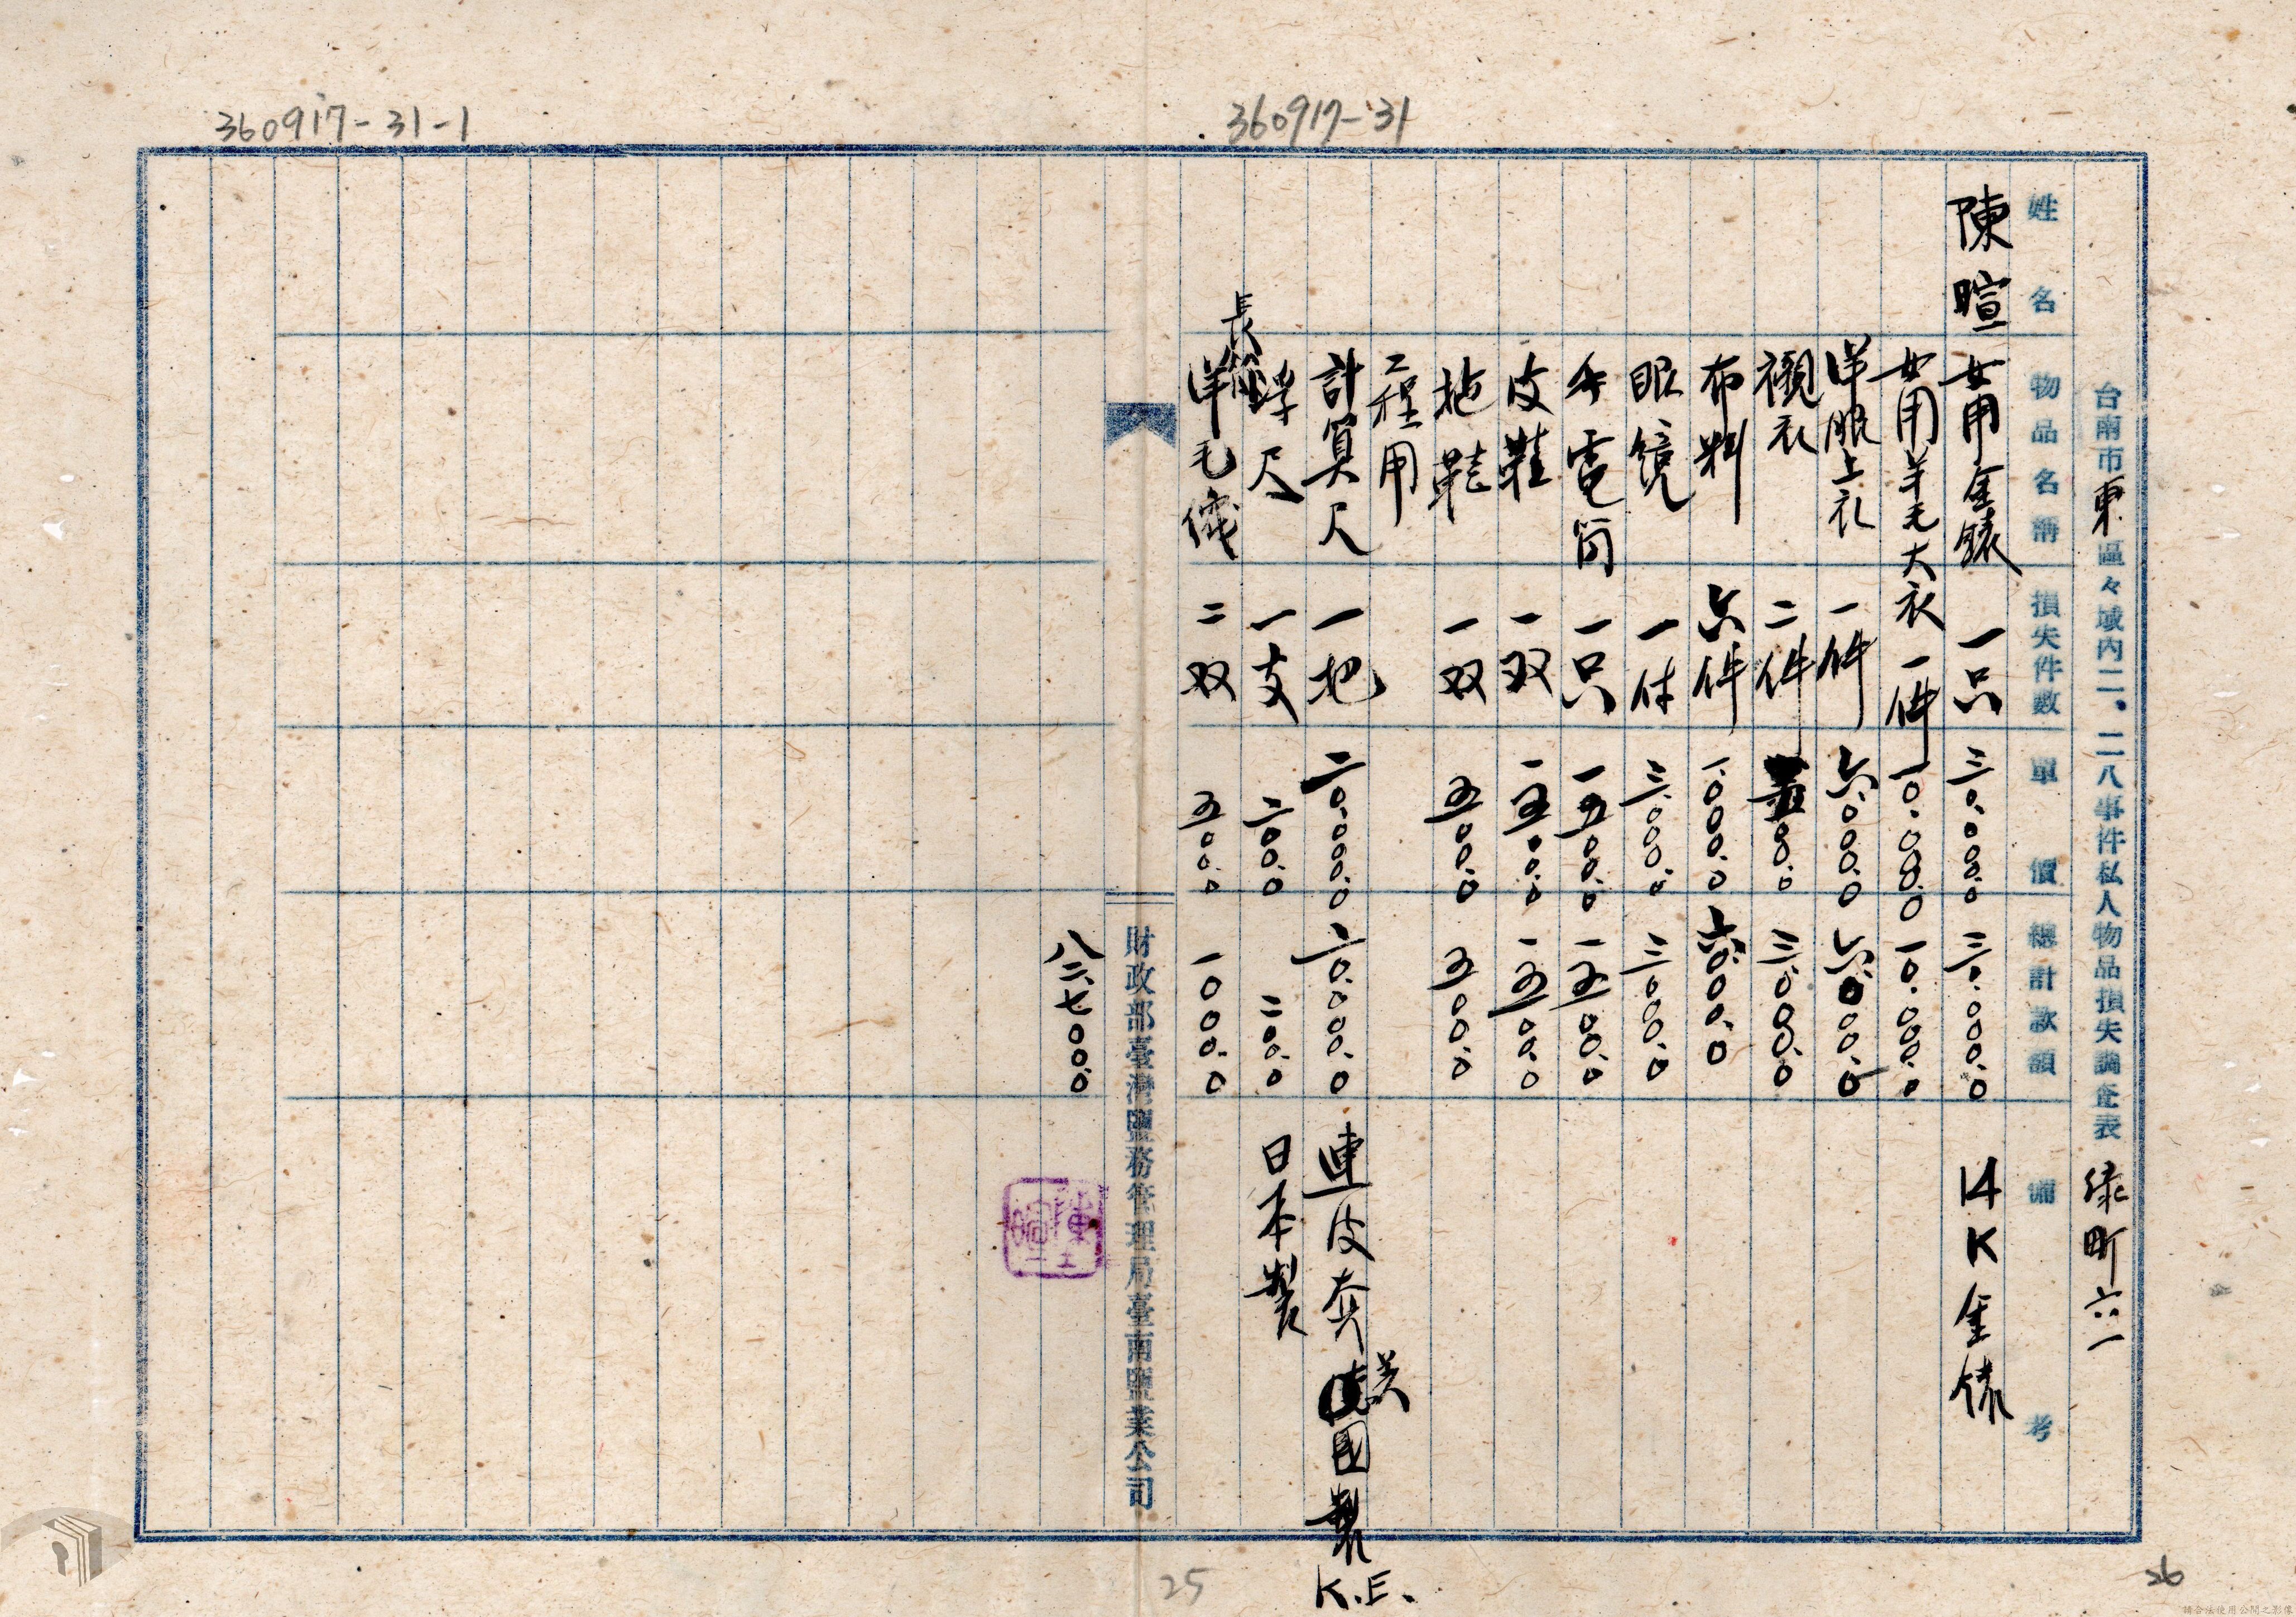 360917-31
360917-31-1
台南市東區々域內二.二八事件私人物品損失調查表 綠町六一
姓名 物品名稱 損失件數 單價 總計款額 備考
陳暄 女用金錶 一只 三〇.〇〇〇.〇 三〇.〇〇〇.〇 14K金錶
女用羊毛大衣 一件 一〇.〇〇〇.〇 一〇.〇〇〇.〇
洋服上衣 一件 六.〇〇〇.〇 六.〇〇〇.〇
襯衣 二件 〇〇.〇 三.〇〇〇.〇
布料 六件 一.〇〇〇.〇 六.〇〇〇.〇
眼鏡 一付 三.〇〇〇.〇 三.〇〇〇.〇
手電筒 一只 一五〇〇.〇 一五〇〇.〇
皮鞋 一双 一五〇〇.〇 一五〇〇.〇
拖鞋 一双 五〇〇.〇 五〇〇.〇
工程用
計算尺 一把 二〇.〇〇〇.〇 二〇.〇〇〇.〇 連皮套 美國製 K.E.
長 浮尺 一支 二〇〇.〇 二〇〇.〇 日本製
洋毛襪 二双 五〇〇.〇 一〇〇〇.〇
財政部臺灣鹽務管理局臺南鹽業公司
八三.七〇〇.〇
25
26
請合法使用公開之影像